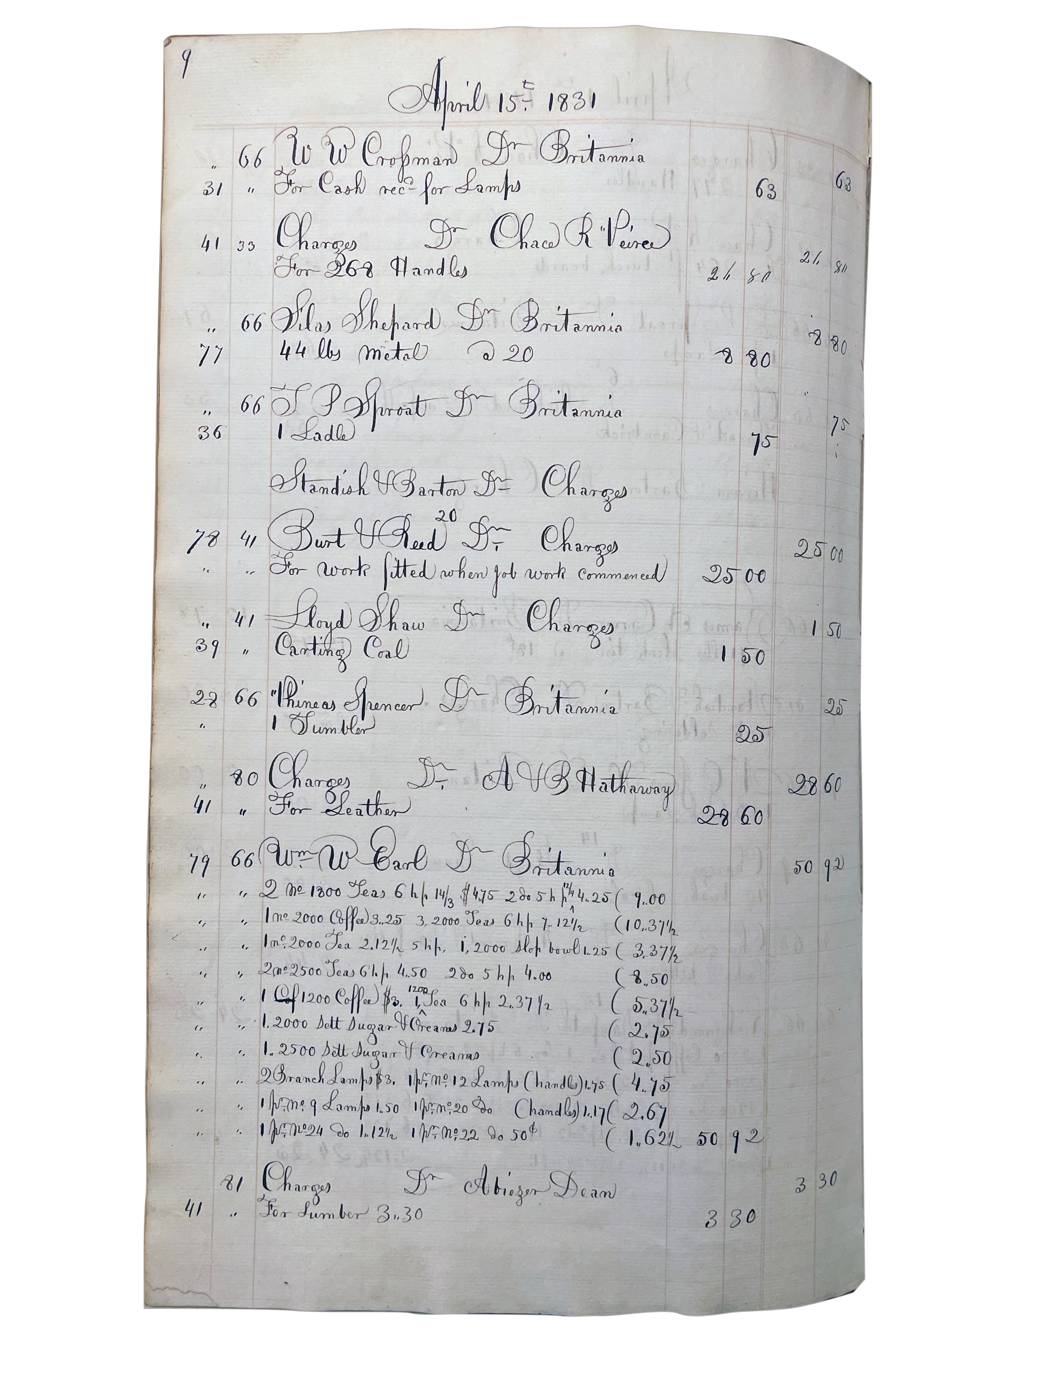 9
April 15th 1831
" 66 W W Croſsman Dr Britannia 63
31 " For Cash recd for Lamps 63
41 33 Charges Dr Chace R Peirce 21 80
For 268 Handles 21 80
" 66 Silas Shepard Dr Britannia 8 80
77 44 lbs metal @ 20 8 80
" 66 T P Sproat Dr Britannia 75
36 1 Ladle 75
Standish & Barton Dr Charges
20
78 41 Burt & Reed Dr. Charges 25 00
" " For work fitted when job work commenced 25 00
" 41 Lloyd Shaw Dr Charges 1 50
39 " Carting Coal 1 50
28 66 Phineas Spencer Dr Britannia 25
" 1 Tumbler 25
" 80 Charges Dr. A & B Hathaway 28 60
41 " For Leather 28 60
79 66 Wm W Earl Dr Britannia 50 92
" " 2 no 1800 Teas 6 hp 14/3 $4.75 2 do 5 hp 4.25 ( 9.00
" " 1 no 2000 Coffee 3..25 3. 2000 Teas 6 hp 7..12½ (10.37½
" " 1 no 2000 Tea 2.12½ 5 hp. 1, 2000 Slop bowl 1.25 ( 3.37½
" " 2 no 2500 Teas 6 hp 4.50 2 do 5 hp 4.00 ( 8.50
" " 1 Cof 1200 Coffee $3. 1, 1200 Tea 6 hp 2.37½ ( 5.37½
" " 1. 2000 Sett Sugar & Creams 2.75 ( 2.75
" " 1.. 2500 Sett Sugar & Creams ( 2.50
" " 2 Branch Lamps $3. 1 pr. no 12 Lamps (handles) 1.75 ( 4.75
" " 1 pr. no 9 Lamps 1.50 1 pr. no 20 do (handles) 1.17 ( 2.67
" " 1 pr. No 24 do 1.12½ 1 pr. No 22 do 50¢ ( 1..62½ 50 92
81 Charges Dr Abiezer Dean 3 30
41 " For Lumber 3..30 3 30